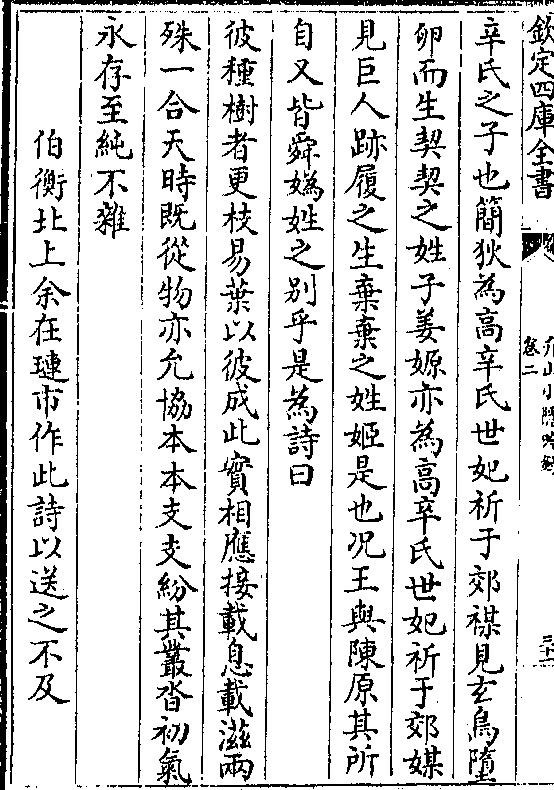 欽定四庫全書
卷二
辛氏之子也簡狄為高辛氏世妃祈于郊禖見玄鳥墮
卵而生契契之姓子姜嫄亦為高辛氏世妃祈于郊媒
見巨人跡履之生棄棄之姓姬是也况王與陳原其所
自又皆舜媯姓之别乎是為詩曰
彼種樹者更枝易葉以彼成此實相應接載息載滋兩
殊一合天時既從物亦允協本本支支紛其叢沓初氣
永存至純不雜
伯衡北上余在璉市作此詩以送之不及